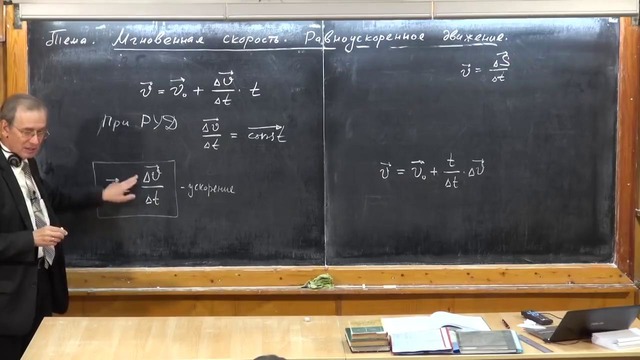 Тема. Мгновенная скорость. Равноускоренное движение.
v⃗ = v⃗₀ + Δv⃗/Δt · t
При РУД Δv⃗/Δt = const⃗
Δv⃗/Δt - ускорение
v⃗ = ΔS⃗/Δt
v⃗ = v⃗₀ + t/Δt · Δv⃗